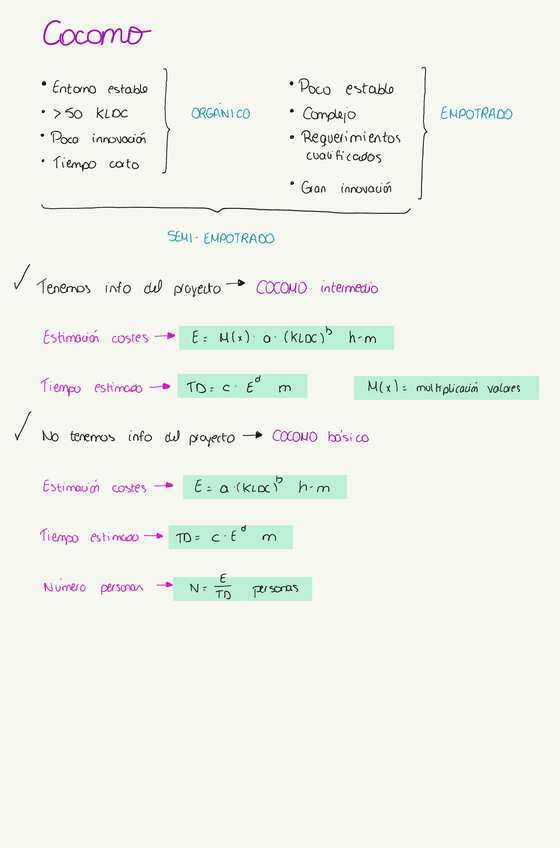 Cocomo
• Entorno estable
• > 50 KLDC
• Poca innovación
• Tiempo corto
ORGÁNICO
• Poco estable
• Complejo
• Requerimientos
cualificados
• Gran innovación
EMPOTRADO
SEMI-EMPOTRADO
✓ Tenemos info del proyecto → COCOMO intermedio
Estimación costes → E = M(x) · a · (KLDC)^b h-m
Tiempo estimado → TD = c · E^d m
M(x) = multiplicación valores
✓ No tenemos info del proyecto → COCOMO básico
Estimación costes → E = a · (KLDC)^b h-m
Tiempo estimado → TD = c · E^d m
Número personas → N = E/TD personas